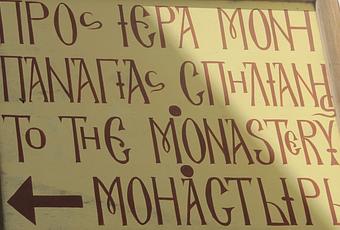 ΠΡΟς ΙΕΡΑ ΜΟΝΗ
ΠΑΝΑΓΙΑς ΣΠΗΛΙΑΝΗ
TO THE MONASTERY
МОНАСТЫРЬ